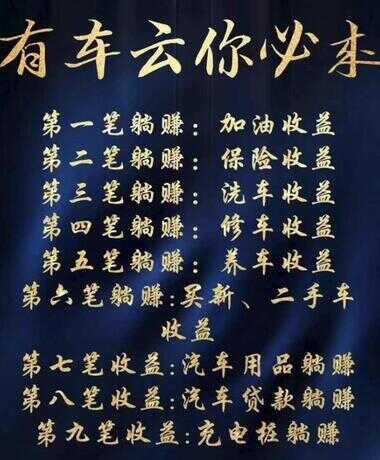 有车云你必来
第一笔躺赚：加油收益
第二笔躺赚：保险收益
第三笔躺赚：洗车收益
第四笔躺赚：修车收益
第五笔躺赚：养车收益
第六笔躺赚:买新、二手车
收益
第七笔收益:汽车用品躺赚
第八笔收益:汽车贷款躺赚
第九笔收益:充电桩躺赚